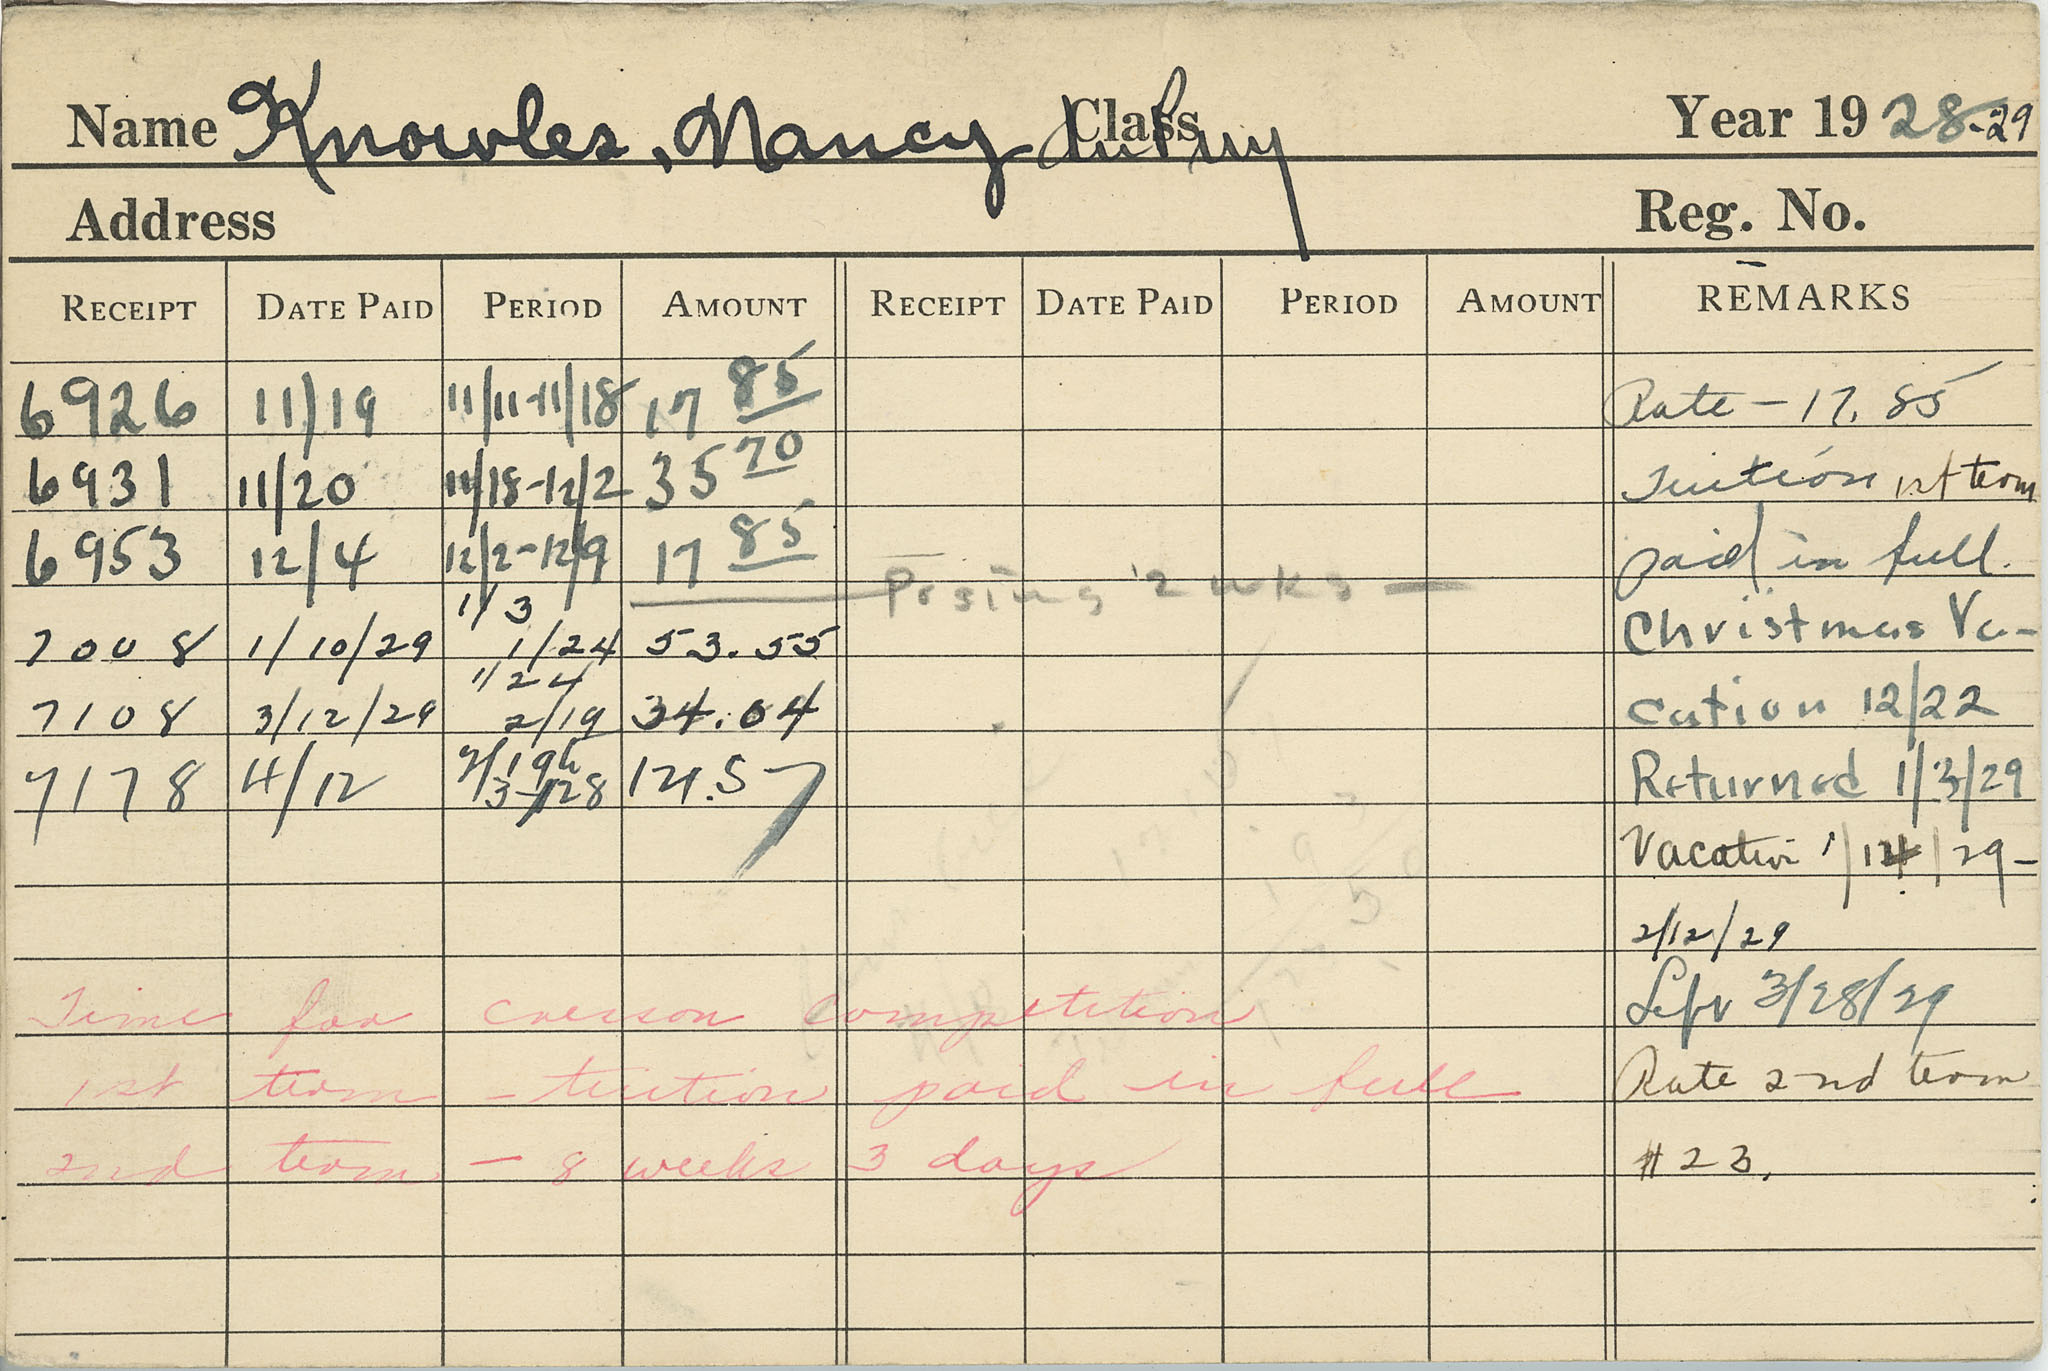 Name Knowles, Nancy Class Year 19 28-29
Address Reg. No.
RECEIPT DATE PAID PERIOD AMOUNT RECEIPT DATE PAID PERIOD AMOUNT REMARKS
6926 11/19 11/11-11/18 17 85 Rate - 17.85
6931 11/20 11/18-12/2 35 70 Tuition 1st term
6953 12/4 12/2-12/9 17 85 paid in full.
Posing 2 wks —
1/3
7008 1/10/29 1/24 53.55 Christmas Va-
1/24
7108 3/12/29 2/19 34.04 cation 12/22
2/19
7178 4/12 3/28 121.57 Returned 1/3/29
Vacation 1/24/29-
2/12/29
Time for cresson competition Left 3/28/29
1st term - tuition paid in full Rate 2nd term
2nd term - 8 weeks 3 days #23.